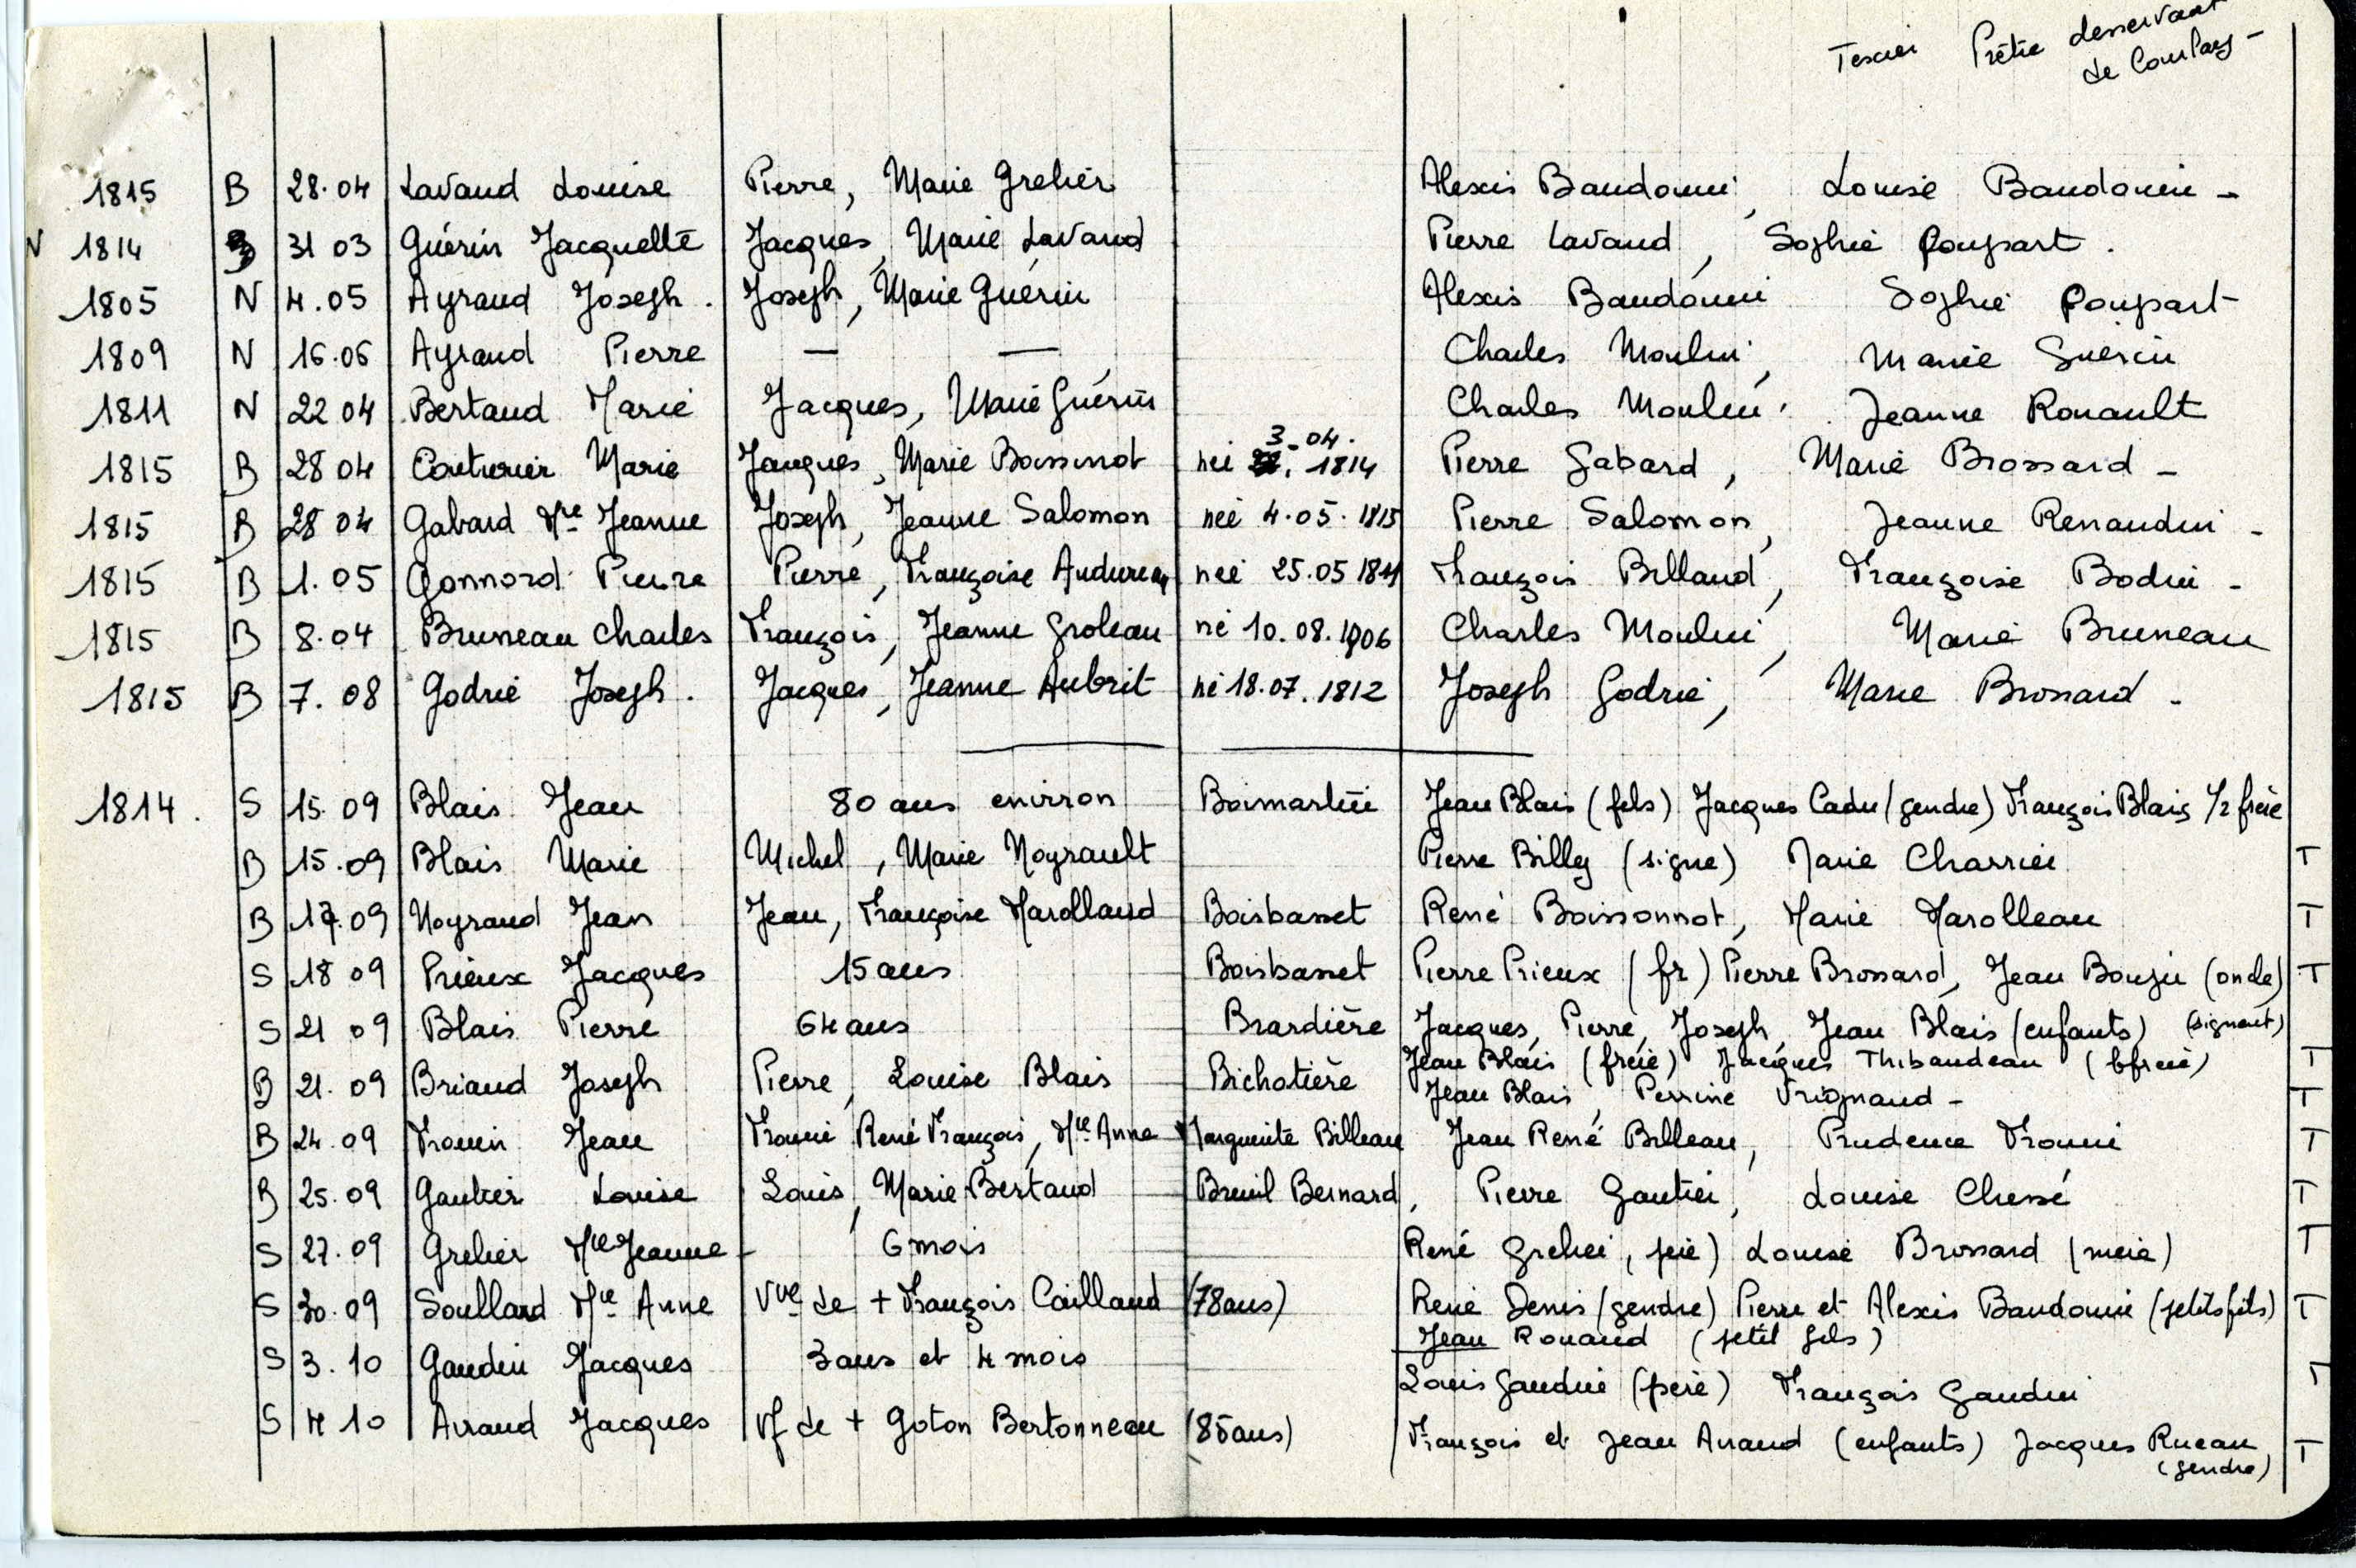 Texier Prêtre desservant
de Coulary -
1815 B 28.04 Lavaud Louise Pierre, Marie Grelier Alexis Baudouin, Louise Baudouin -
N 1814 B 31 03 Guérin Jacquette Jacques, Marie Lavaud Pierre Lavaud, Sophie Poupart.
1805 N 4.05 Ayraud Joseph. Joseph, Marie Guérin Alexis Baudouin Sophie Poupart
1809 N 16.06 Ayraud Pierre — — Charles Moulin, Marie Guérin
1811 N 22 04 Bertaud Marie Jacques, Marie Guérin Charles Moulin, Jeanne Rouault
3-04.
1815 B 28 04 Couturier Marie Jacques, Marie Boissinot née 1814 Pierre Gabard, Marie Brossard -
1815 B 28 04 Gabard Mie Jeanne Joseph, Jeanne Salomon née 4.05.1815 Pierre Salomon, Jeanne Renaudin -
1815 B 1.05 Gonnord Pierre Pierre, Françoise Audureau née 25.05 1811 François Billaud, Françoise Bodin -
1815 B 8.04 Bruneau Charles François, Jeanne Groleau né 10.08.1806 Charles Moulin, Marie Bruneau
1815 B 7.08 Godrie Joseph. Jacques, Jeanne Aubrit né 18.07.1812 Joseph Godrie, Marie Brossard -
1814. S 15.09 Blais Jean 80 ans environ Boismartin Jean Blais (fils) Jacques Cadu (gendre) François Blais 1/2 frère
B 15.09 Blais Marie Michel, Marie Noyrault Pierre Billy (signe) Marie Charrier T
B 17.09 Noyraud Jean Jean, Françoise Marollaud Boisbasset René Boissonnot, Marie Marolleau T
S 18 09 Prieux Jacques 15 ans Boisbasset Pierre Prieux (fr) Pierre Brossard, Jean Bouzin (oncle) T
S 21 09 Blais Pierre 64 ans Brardière Jacques, Pierre, Joseph, Jean Blais (enfants) (signent)
Jean Blais (frère) Jacques Thibaudeau (bfrère) T
B 21.09 Briaud Joseph Pierre, Louise Blais Bichotière Jean Blais, Perrine Vrignaud - T
B 24.09 Frouin Jean Frouin René François, Mie Anne Marguerite Billeau Jean René Billeau, Prudence Frouin T
B 25.09 Gautier Louise Louis, Marie Bertaud Breuil Bernard, Pierre Gautier, Louise Chessé T
S 27.09 Grelier Mie Jeanne - 6 mois René Grelier, père) Louise Brossard (mère) T
S 30.09 Soullard Mie Anne Vve de + François Caillaud (78 ans) René Denis (gendre) Pierre et Alexis Baudouin (petits fils) T
Jean Rouaud (petit fils)
S 3.10 Gaudin Jacques 3 ans et 4 mois Louis Gaudin (père) François Gaudin T
S 4 10 Airaud Jacques Vf de + Goton Bertonneau (85 ans) François et Jean Airaud (enfants) Jacques Rueau T
(gendre)